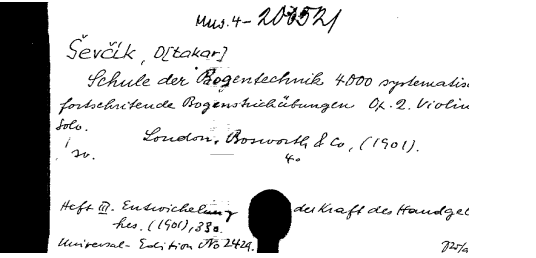 Mus. 4-20752/
Ševčík, O[takar]
Schule der Bogentechnik 4000 systematis
fortschritende Bogenstrichübungen Op. 2. Violin
Solo.
London, Bosworth & Co, (1901).
4o
Heft III. Entwickelung der Kraft des Handgel
kes. (1901), 33 s.
Universal-Edition No 2429.